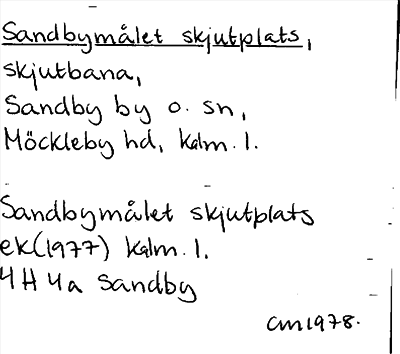 Sandbymålet skjutplats,
skjutbana,
Sandby by o. sn,
Möckleby hd, kalm. l.
Sandbymålet skjutplats
ek(1977) kalm. l.
4H 4a Sandby
CM1978.